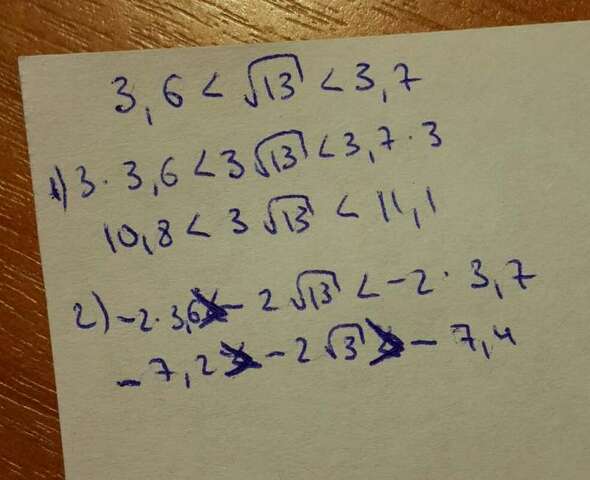 3,6 < √13 < 3,7
1) 3 · 3,6 < 3√13 < 3,7 · 3
10,8 < 3√13 < 11,1
2) -2 · 3,6 > -2√13 < -2 · 3,7
-7,2 > -2√3 > -7,4